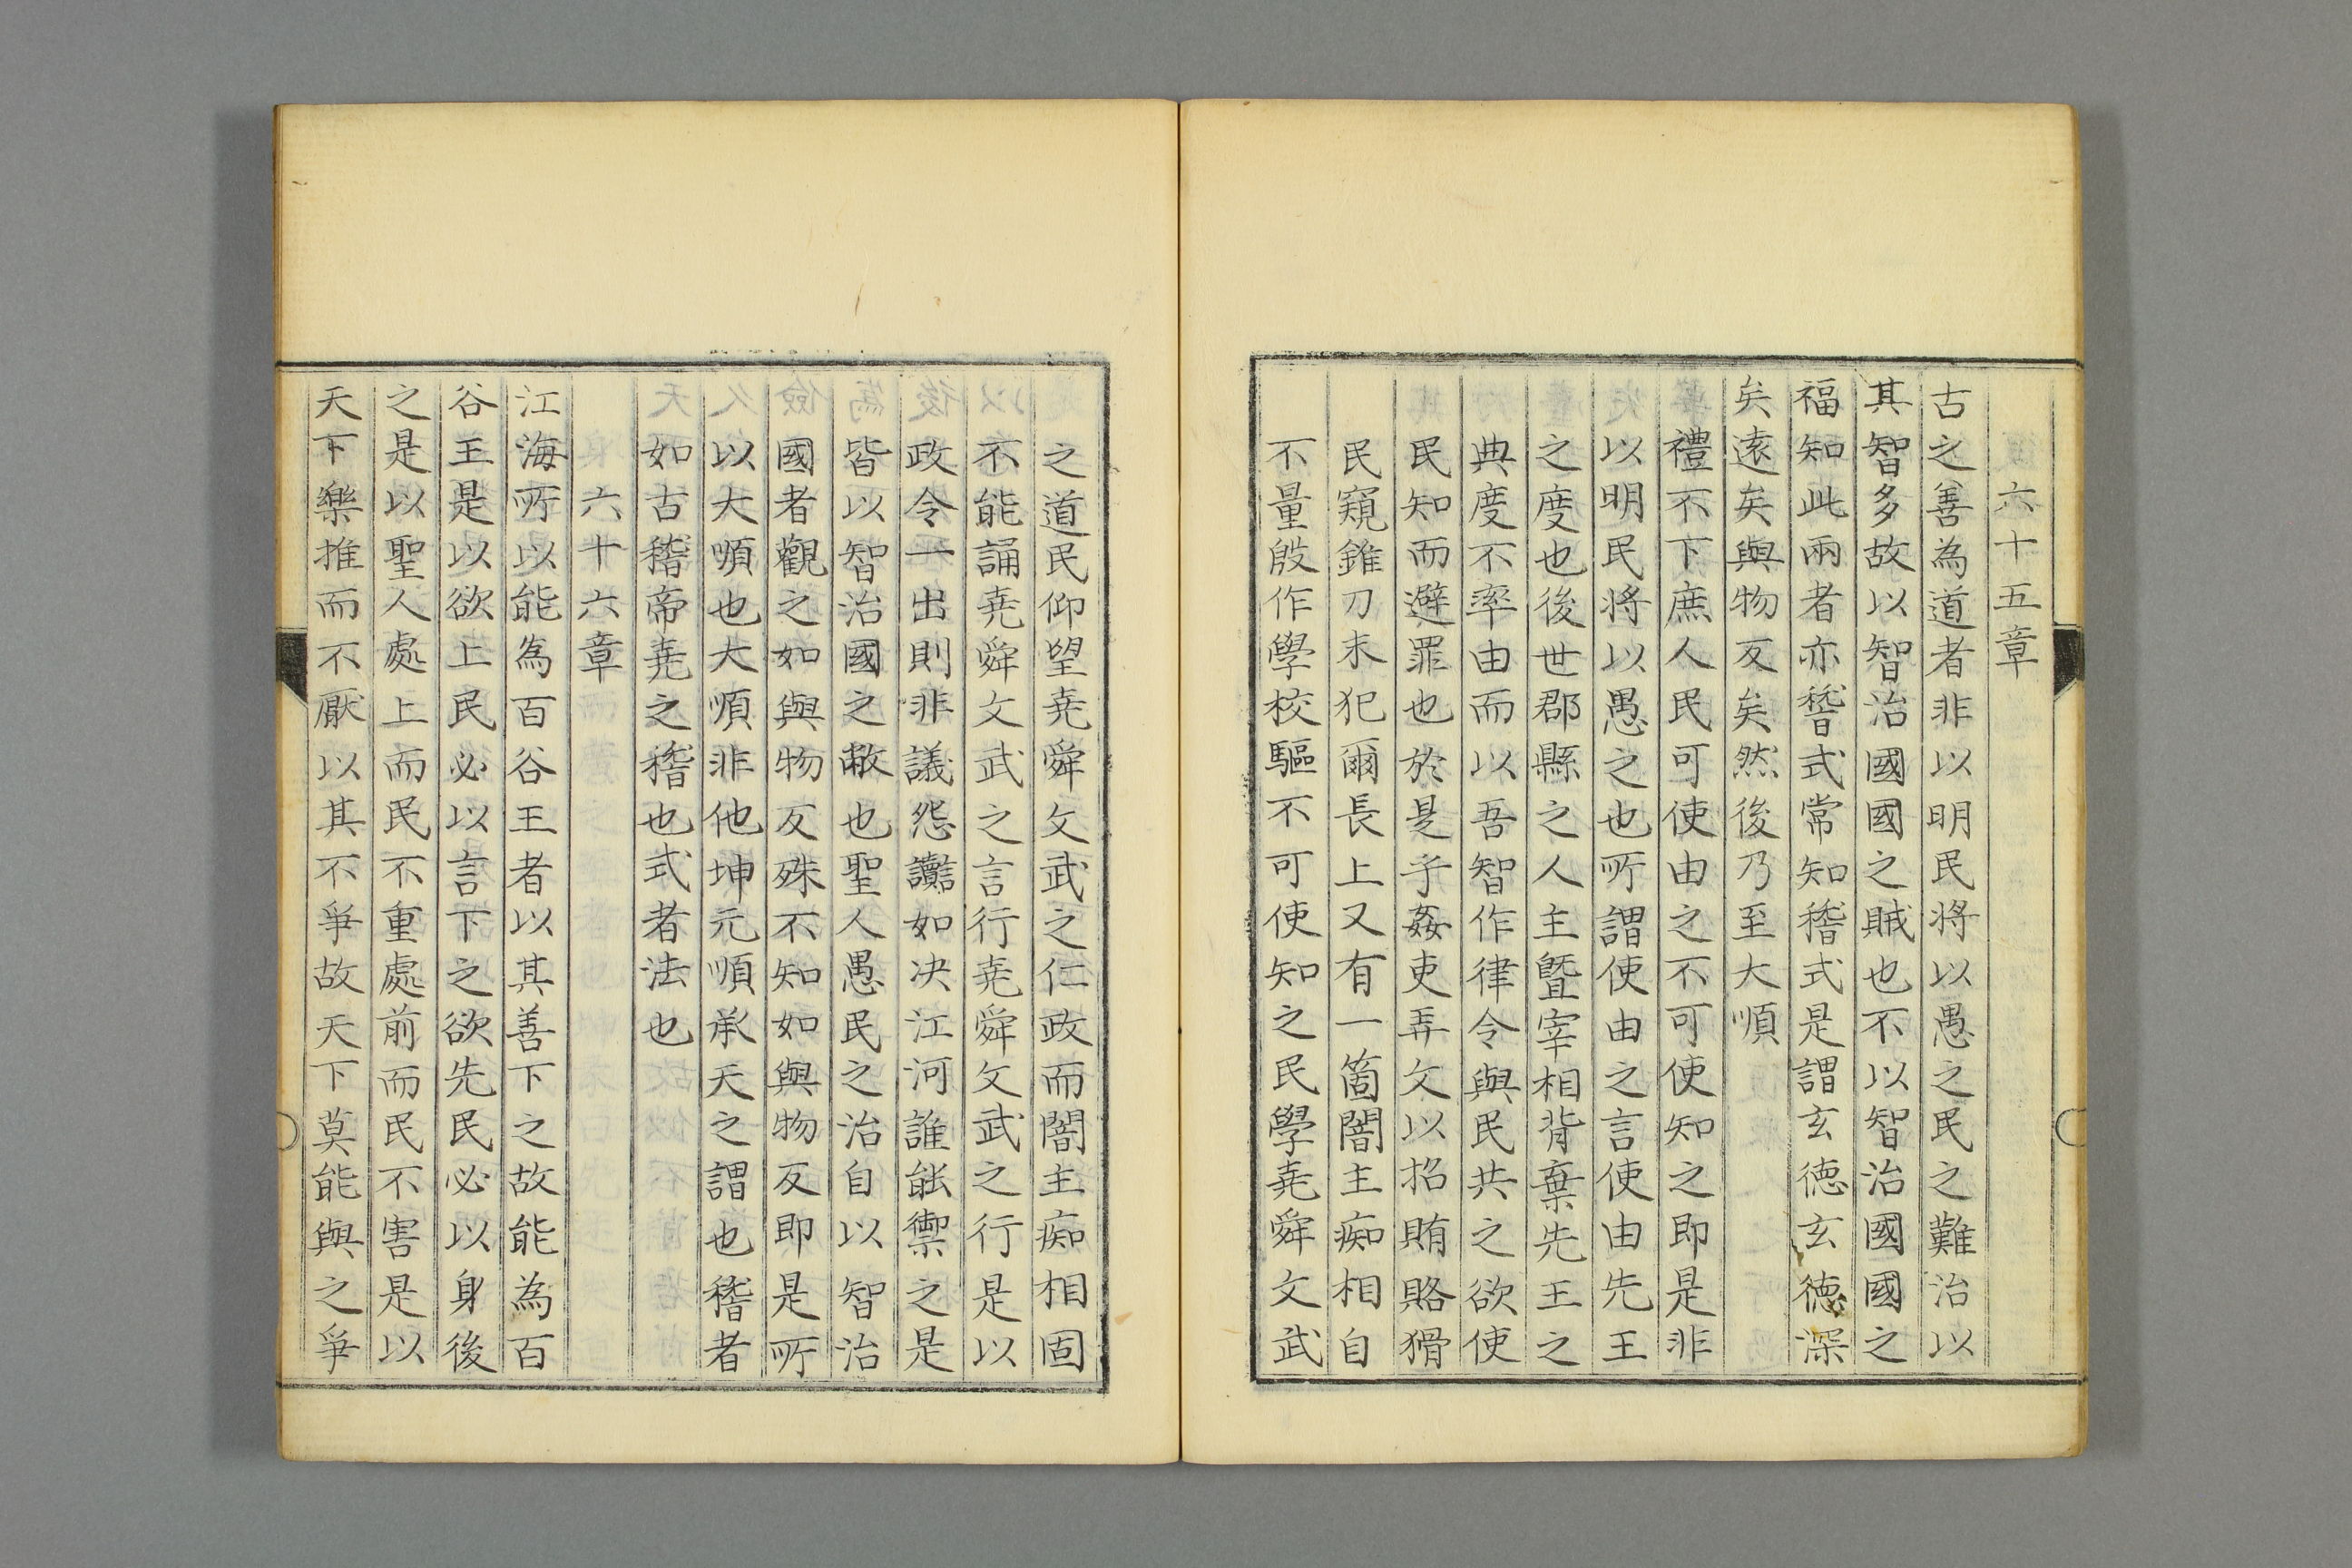 六十五章
古之善為道者非以明民将以愚之民之難治以
其智多故以智治國國之賊也不以智治國國之
福知此兩者亦稽式常知稽式是謂玄徳玄徳深
矣逺矣與物反矣然後乃至大順
禮不下庶人民可使由之不可使知之即是非
以明民将以愚之也所謂使由之言使由先王
之度也後世郡縣之人主曁宰相背棄先王之
典度不率由而以吾智作律令與民共之欲使
民知而避罪也於是乎姦吏弄文以招賄賂猾
民窺錐刀末犯爾長上又有一箇闇主痴相自
不量殷作學校驅不可使知之民學尭舜文武
之道民仰望尭舜文武之仁政而闇主痴相固
不能誦尭舜文武之言行尭舜文武之行是以
政令一出則非議怨讟如决江河誰能禦之是
皆以智治國之敝也聖人愚民之治自以智治
國者觀之如與物反殊不知如與物反即是所
以大順也大順非他坤元順承天之謂也稽者
如古稽帝尭之稽也式者法也
六十六章
江海所以能為百谷王者以其善下之故能為百
谷王是以欲上民必以言下之欲先民必以身後
之是以聖人處上而民不重處前而民不害是以
天下樂推而不厭以其不爭故天下莫能與之爭